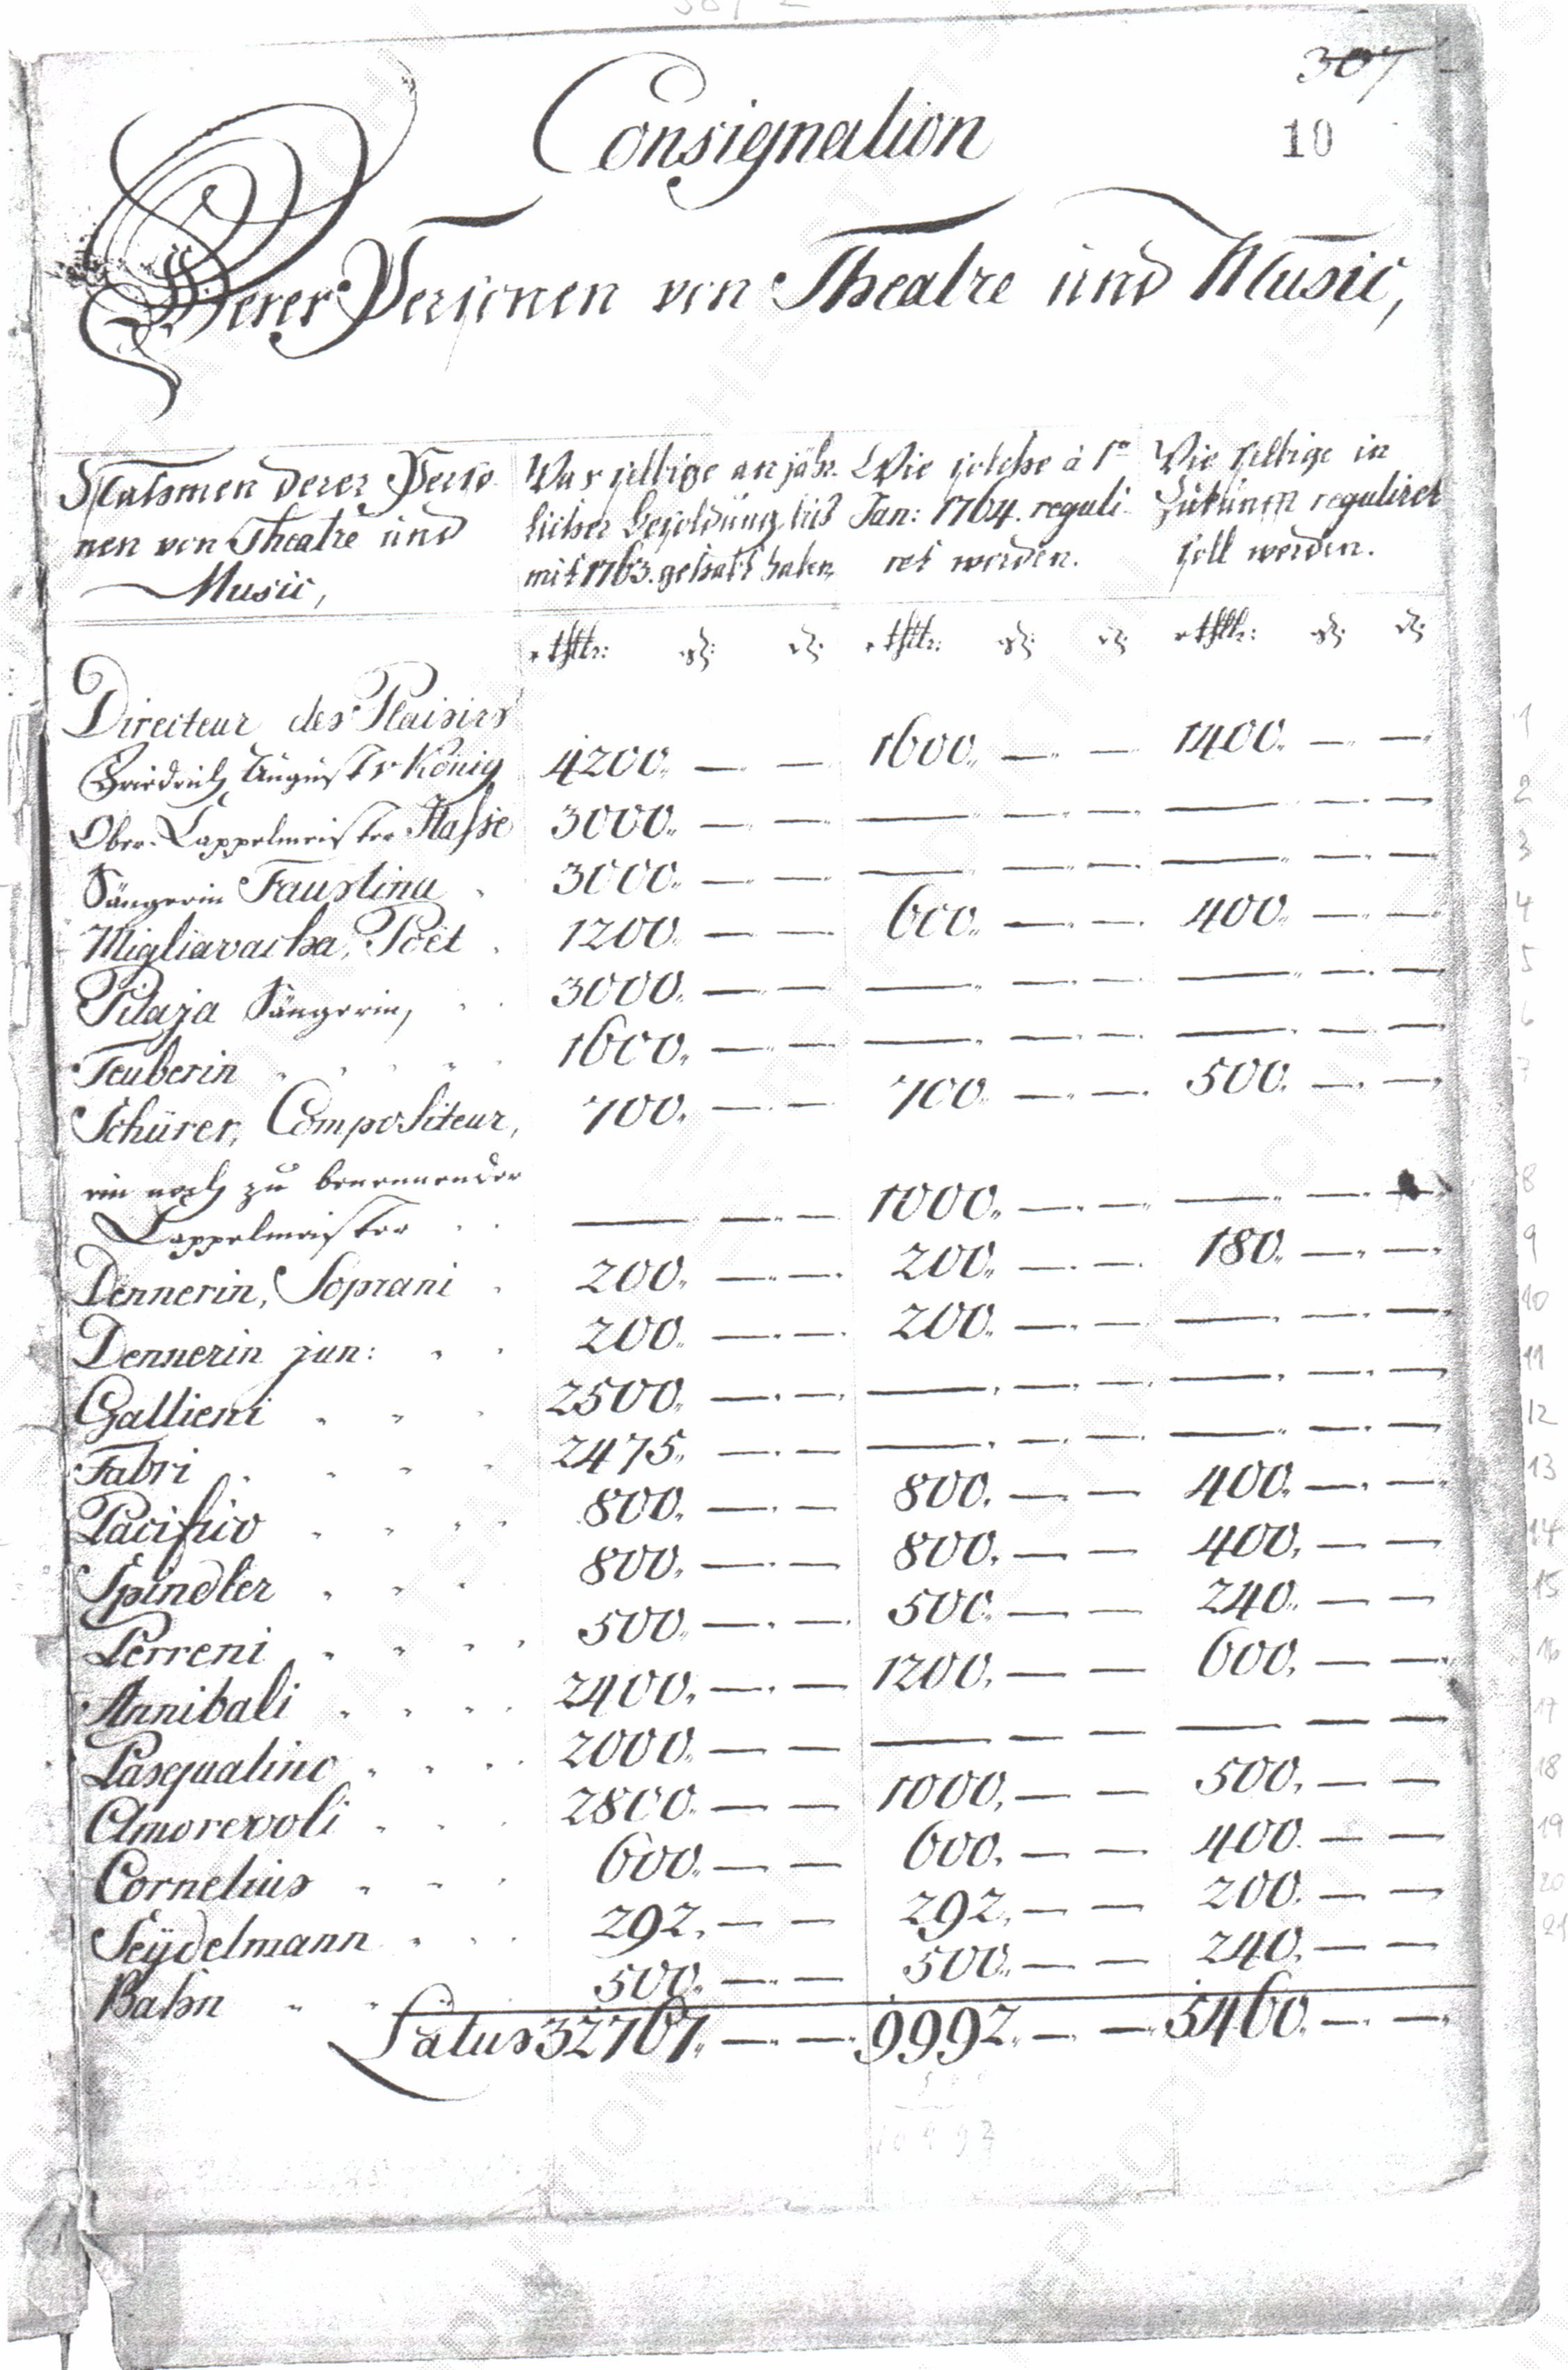 307
10
Consignation
Derer Personen von Theatre und Music,
Nahmen derer Perso
nen von Theatre und
Music,
Was selbige an jähr
licher Besoldung bis
mit 1763. gehabt haben,
Wie solche à 1mo
Jan: 1764. reguli
ret worden.
Wie selbige in
Zukunft reguliret
soll werden.
rthlr: gl: d: rthlr: gl: d: rthlr: gl: d:
Directeur des Plaisirs
Friedrich August v König 4200. — — 1600. — — 1400. — — 1
Ober-Cappelmeister Hasse 3000. — — — — — — — — 2
Sängerin Faustina 3000. — — — — — — — — 3
Migliavacha, Poët 1200. — — 600. — — 400. — — 4
Pilaja Sängerin, 3000. — — — — — — — — 5
Teuberin 1600. — — — — — — — — 6
Schürer, Compositeur, 700. — — 700. — — 500. — — 7
ein noch zu benennender
Cappelmeister — — — 1000. — — — — — 8
Dennerin, Soprani 200. — — 200. — — 180. — — 9
Dennerin jun: 200. — — 200. — — — — — 10
Gallieni 2500. — — — — — — — — 11
Fabri 2475. — — — — — — — — 12
Pacifico 800. — — 800. — — 400. — — 13
Spindler 800. — — 800. — — 400. — — 14
Perreni 500. — — 500. — — 240. — — 15
Annibali 2400. — — 1200. — — 600. — — 16
Pasqualino 2000. — — — — — — — — 17
Amorevoli 2800. — — 1000. — — 500. — — 18
Cornelius 600. — — 600. — — 400. — — 19
Seÿdelmann 292. — — 292. — — 200. — — 20
Bahn 500. — — 500. — — 240. — — 21
Latus 32767. — — 9992. — — 5460. — —